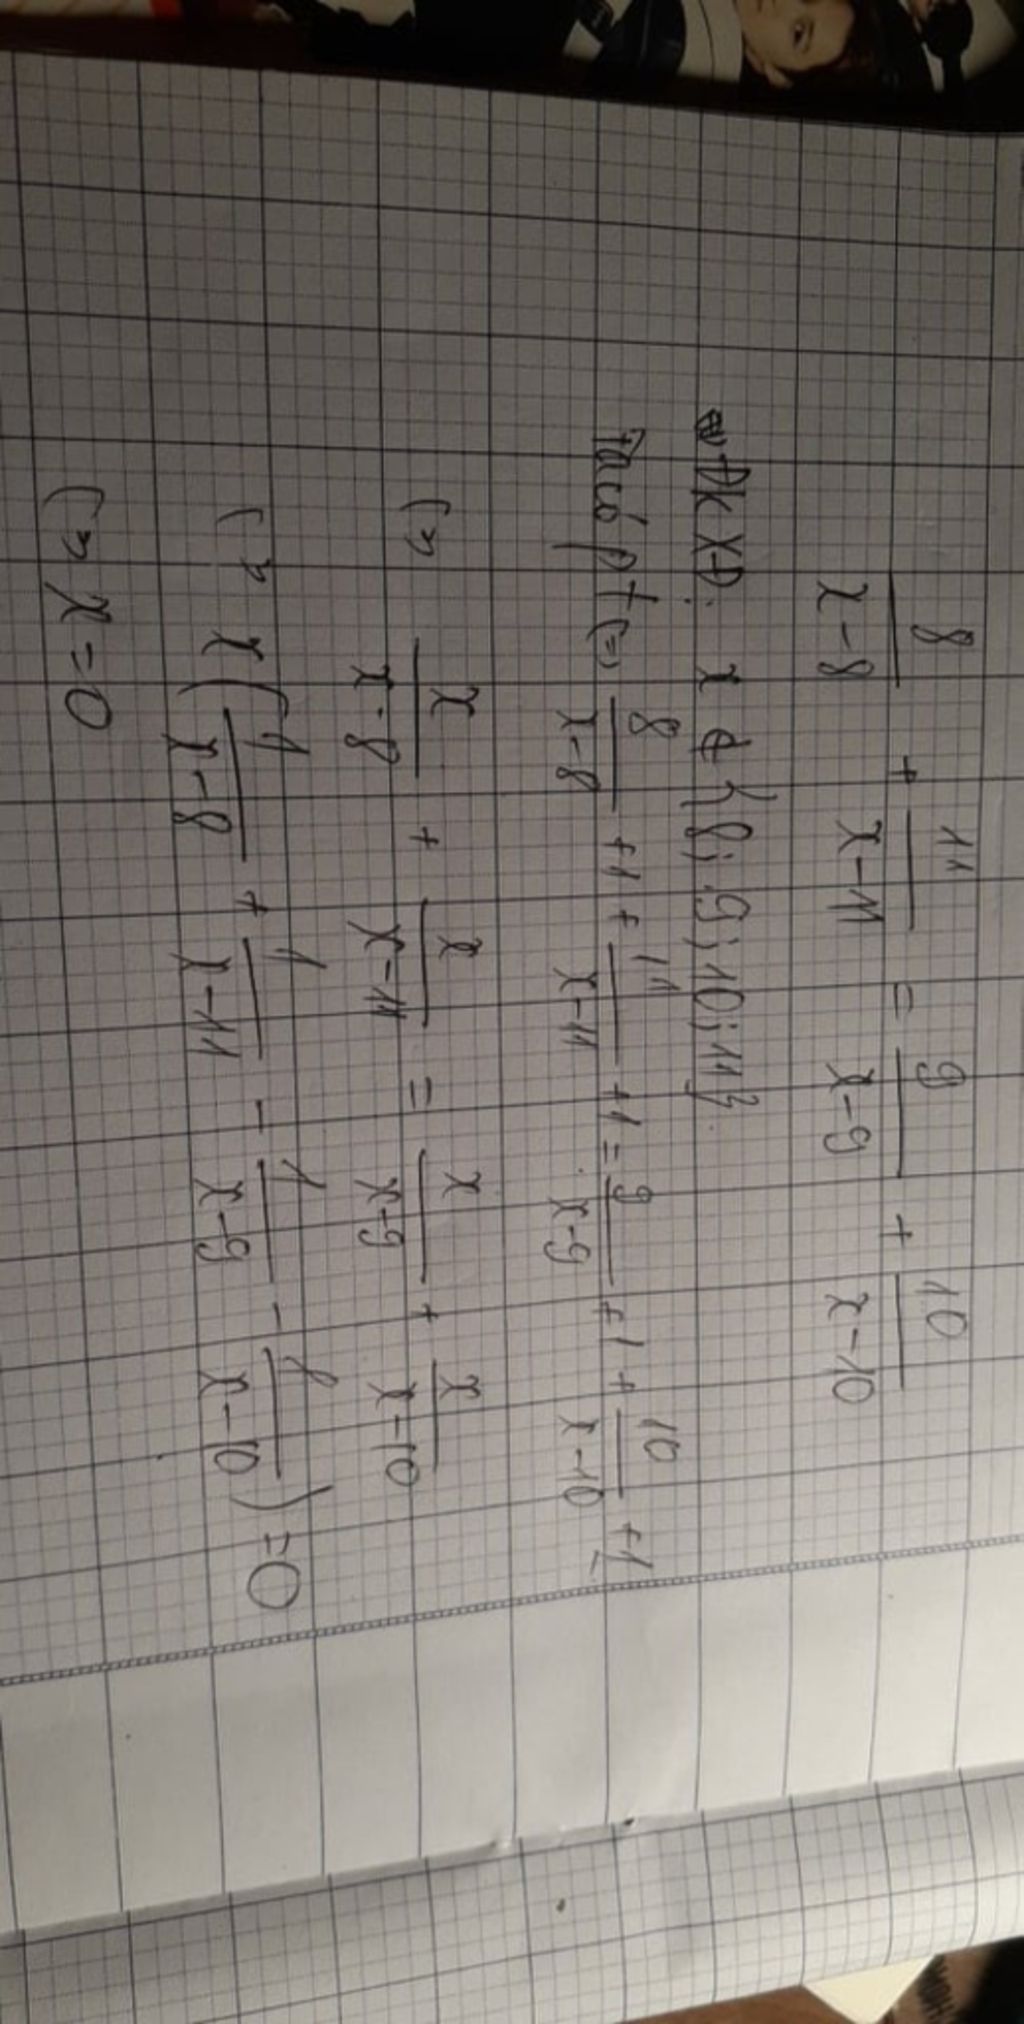 8/(x-8) + 11/(x-11) = 9/(x-9) + 10/(x-10)
ĐKXĐ: x ∉ {8; 9; 10; 11}
Ta có pt (=) 8/(x-8) +1 + 11/(x-11) +1 = 9/(x-9) +1 + 10/(x-10) +1
(=) x/(x-8) + x/(x-11) = x/(x-9) + x/(x-10)
(=) x(1/(x-8) + 1/(x-11) - 1/(x-9) - 1/(x-10)) = 0
(=) x = 0